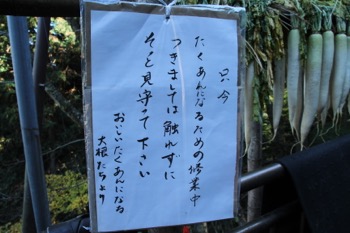 只今
たくあんになるための修業中
つきましては触れずに
そっと見守って下さい
おいしいたくあんになる
大根たちより